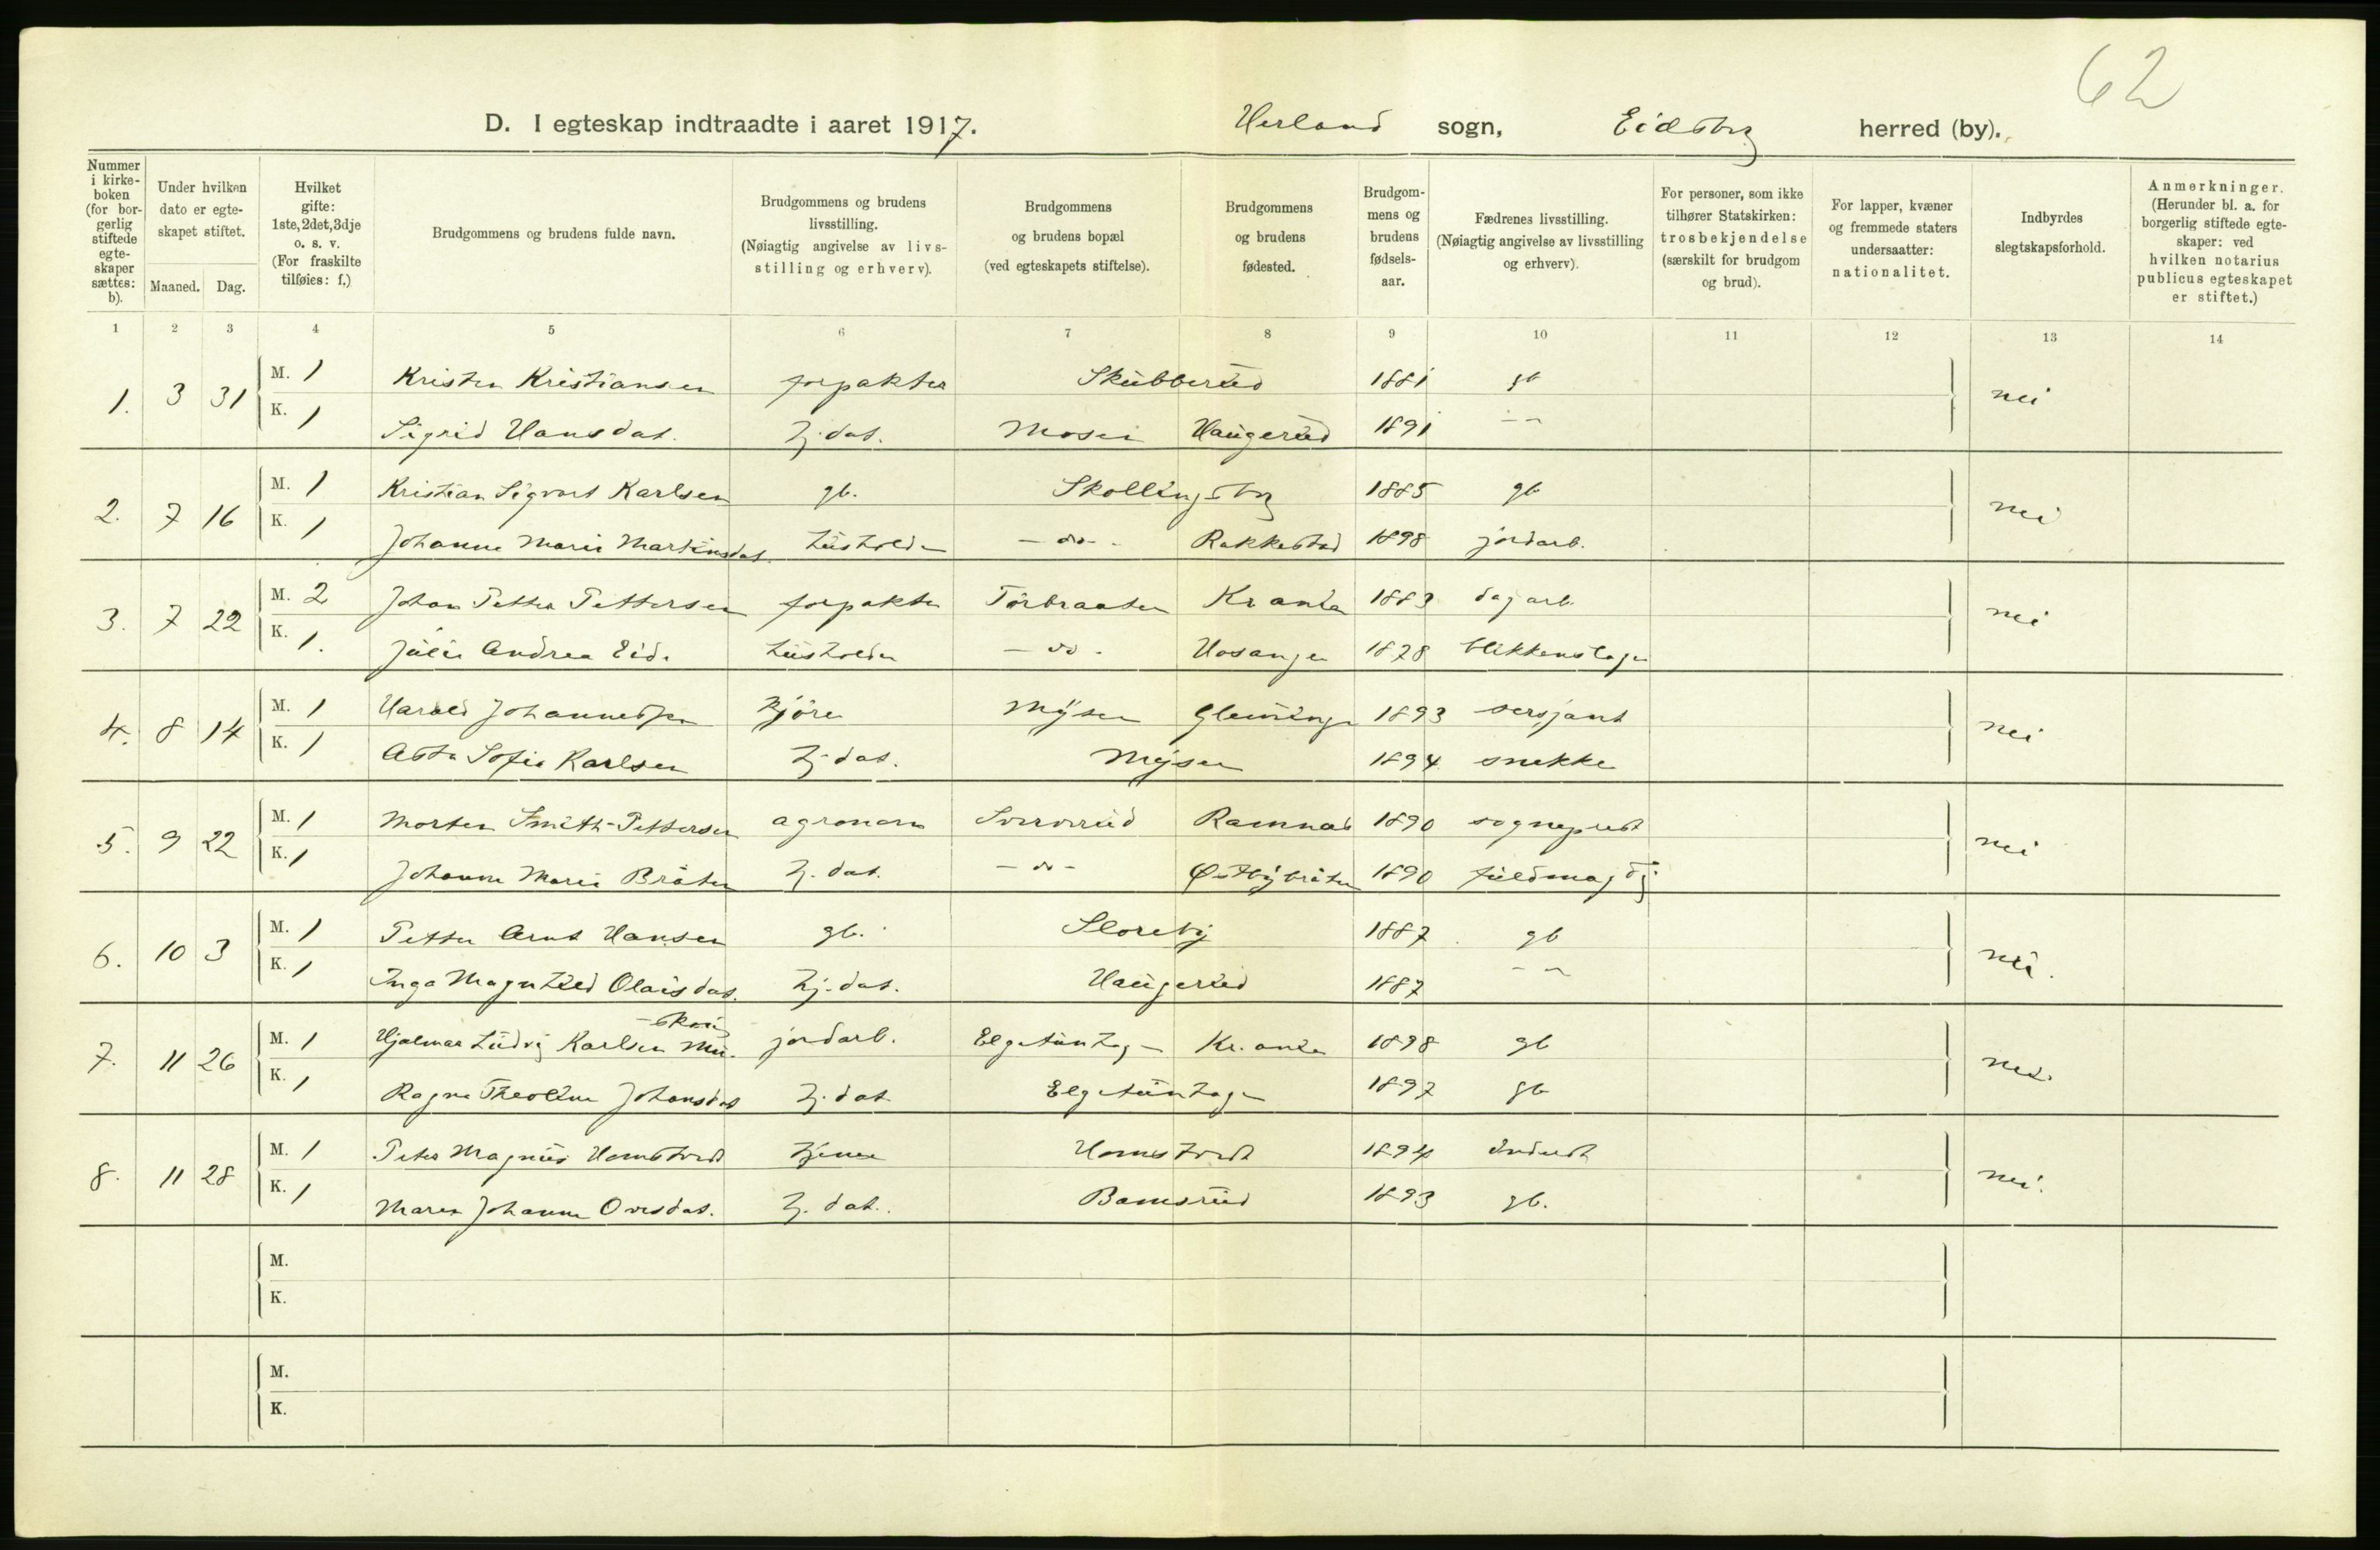 62
D. I egteskap indtraadte i aaret 1917. Herland sogn, Eidsbrg herred (by).
Nummer i kirkeboken (for borgerlig stiftede egteskaper sættes: b).
Under hvilken dato er egteskapet stiftet.
Maaned. Dag.
Hvilket gifte: 1ste, 2det, 3dje o. s. v. (For fraskilte tilføies: f.)
Brudgommens og brudens fulde navn.
Brudgommens og brudens livsstilling. (Nøiagtig angivelse av livsstilling og erhverv).
Brudgommens og brudens bopæl (ved egteskapets stiftelse).
Brudgommens og brudens fødested.
Brudgommens og brudens fødselsaar.
Fædrenes livsstilling. (Nøiagtig angivelse av livsstilling og erhverv).
For personer, som ikke tilhører Statskirken: trosbekjendelse (særskilt for brudgom og brud).
For lapper, kvæner og fremmede staters undersaatter: nationalitet.
Indbyrdes slegtskapsforhold.
Anmerkninger. (Herunder bl. a. for borgerlig stiftede egteskaper: ved hvilken notarius publicus egteskapet er stiftet.)
1 2 3 4 5 6 7 8 9 10 11 12 13 14
1. 3 31 M. 1 Kristen Kristiansen forpakter Skubberud 1881 gb nei
K. 1 Sigrid Hansdat. hj. dat. Mosei Haugerud 1891 - -
2. 7 16 M. 1 Kristian Sigvart Karlsen gb. Skollingsbrg 1885 gb nei
K. 1 Johanne Marie Martinsdat. husholder - do - Rakkestad 1898 jordarb.
3. 7 22 M. 2 Johan Petter Pettersen forpakter Torbraaten Kr.ania 1883 dagarb. nei
K. 1. Julie Andrea Eide husholder - do - Hosanger 1878 blikkenslager
4. 8 14 M. 1 Harald Johannessen Mysen Gleminge 1893 sersjant nei
K. 1 Asta Sofie Karlsen hj. dat. Mysen 1894 snekke
5. 9 22 M. 1 Morten Smith-Pettersen agronom Ramnas 1890 sogneprest nei
K. 1 Johanne Marie Bråten hj. dat. - do - Østbybråten 1890 fuldmægtig
6. 10 3 M. 1 Petter Arnt Hansen gb. Sloreby 1887 gb nei.
K. 1 Inga Magnhild Olaisdat. hj. dat. Haugerud 1887 - -
7. 11 26 M. 1 Hjalmar Ludvig Karlsen jordarb. Elgetunhag Kr.ania 1898 gb nei.
K. 1 Ragna Theoline Johansdat hj. dat. Elgetunhagen 1897 gb
8. 11 28 M. 1 Peter Magnus Homstvedt tjener Homstvedt 1894 inderst nei.
K. 1 Maren Johanne Ovesdat. hj. dat. Bamsrud 1893 gb.
M.
K.
M.
K.